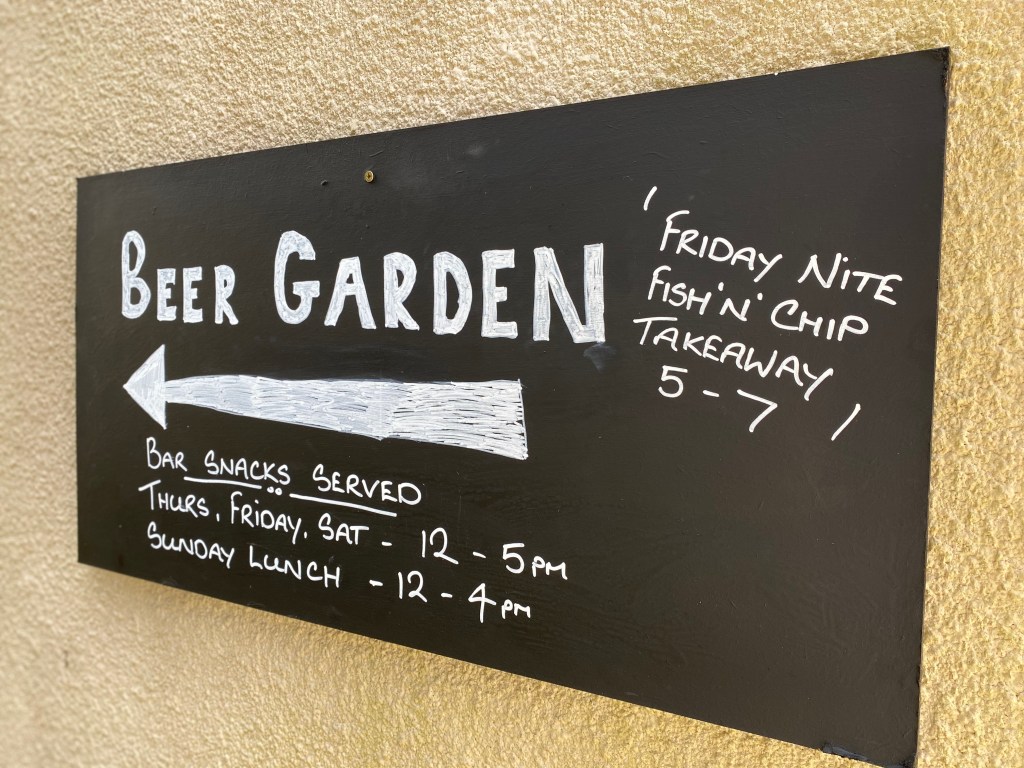 BEER GARDEN
BAR SNACKS SERVED
THURS, FRIDAY, SAT - 12 - 5PM
SUNDAY LUNCH - 12 - 4PM
' FRIDAY NITE
FISH 'N' CHIP
TAKEAWAY
5 - 7 '